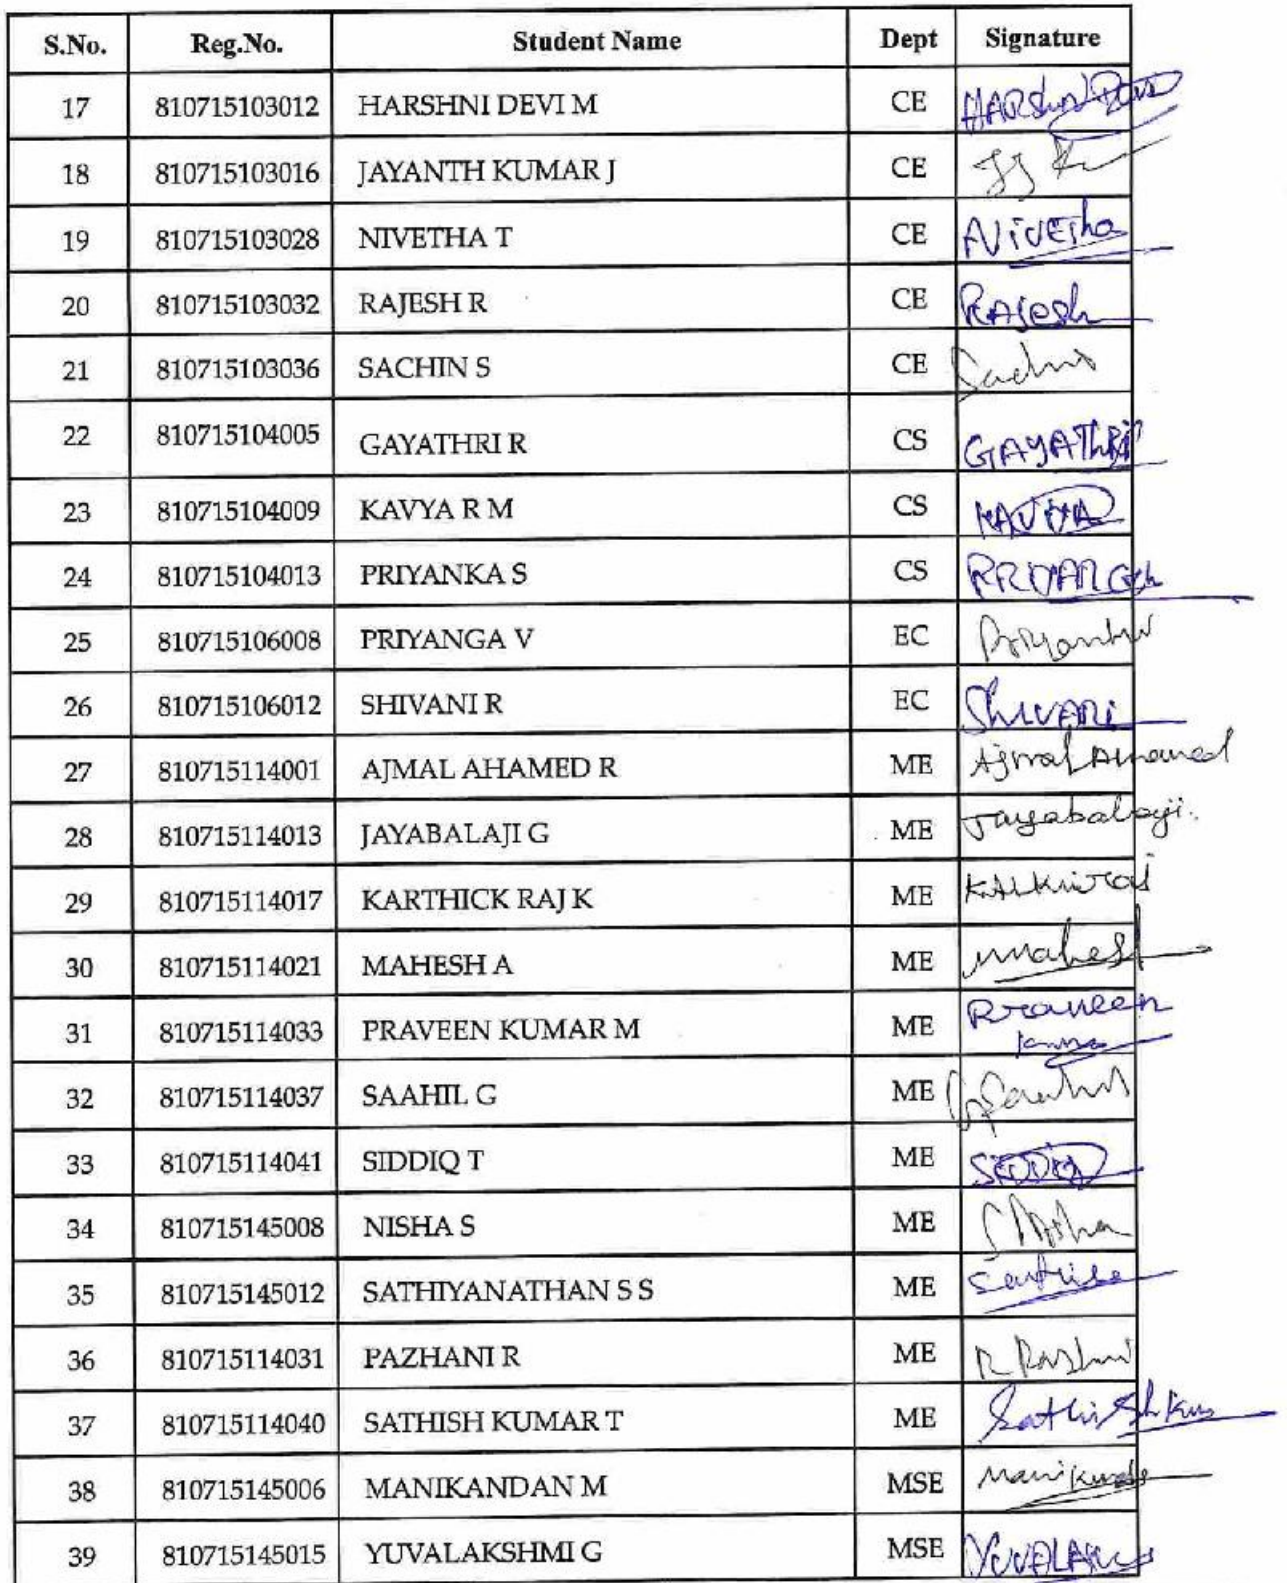 S.No. Reg.No. Student Name Dept Signature
17 810715103012 HARSHNI DEVI M CE HARShni Devi
18 810715103016 JAYANTH KUMAR J CE
19 810715103028 NIVETHA T CE NivEtha
20 810715103032 RAJESH R CE RAjesh
21 810715103036 SACHIN S CE Sachin
22 810715104005 GAYATHRI R CS GAYAThRi
23 810715104009 KAVYA R M CS KAVYA
24 810715104013 PRIYANKA S CS
25 810715106008 PRIYANGA V EC
26 810715106012 SHIVANI R EC ShivANi
27 810715114001 AJMAL AHAMED R ME Ajmal Ahamed
28 810715114013 JAYABALAJI G ME Jayabalaji.
29 810715114017 KARTHICK RAJ K ME
30 810715114021 MAHESH A ME Mahesh
31 810715114033 PRAVEEN KUMAR M ME Praveen
32 810715114037 SAAHIL G ME
33 810715114041 SIDDIQ T ME SIDDIQ
34 810715145008 NISHA S ME S Nisha
35 810715145012 SATHIYANATHAN S S ME
36 810715114031 PAZHANI R ME
37 810715114040 SATHISH KUMAR T ME
38 810715145006 MANIKANDAN M MSE
39 810715145015 YUVALAKSHMI G MSE